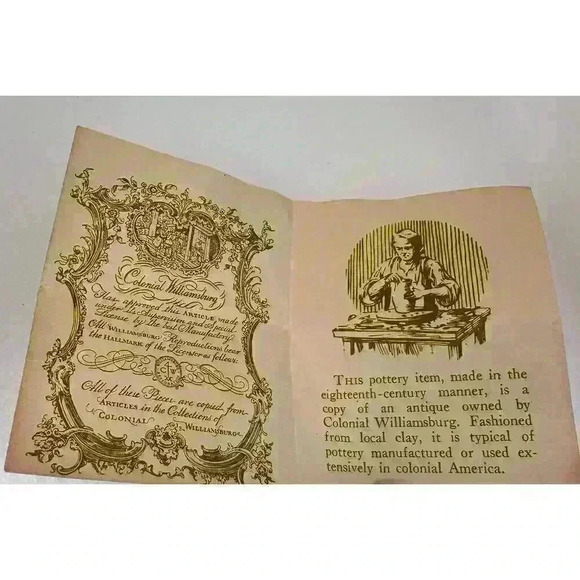 Colonial Williamsburg
Has approved this ARTICLE, made
under its Supervision and Special
License by the best Manufactory
All WILLIAMSBURG Reproductions bear
the HALLMARK of the Licensor as follows:
All of these Pieces are copied from
ARTICLES in the Collections of
COLONIAL WILLIAMSBURG
THIS pottery item, made in the
eighteenth-century manner, is a
copy of an antique owned by
Colonial Williamsburg. Fashioned
from local clay, it is typical of
pottery manufactured or used ex-
tensively in colonial America.